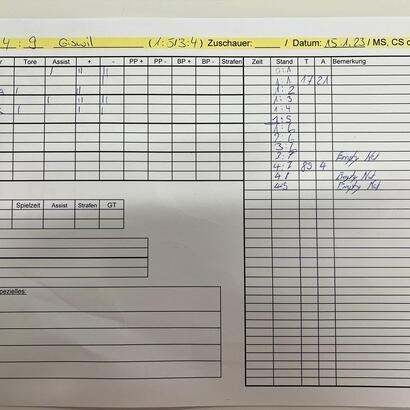 4 : 9 Giswil (1:5/3:4) Zuschauer: / Datum: 15.1.23 / MS, CS
Tore Assist + - PP + PP - BP + BP - Strafen
Zeit Stand T A Bemerkung
0:1
1:1 17 21
1:2
1:3
1:4
1:5
1:6
2:6
3:6
3:7 Empty Net
4:7 85 4
4:8 Empty Net
4:9 Empty Net
Spielzeit Assist Strafen GT
pezielles: